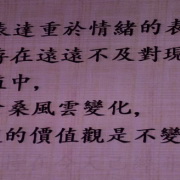 表達重於情緒的表
存在遠遠不及對現
中,
桑風雲變化,
的價值觀是不變